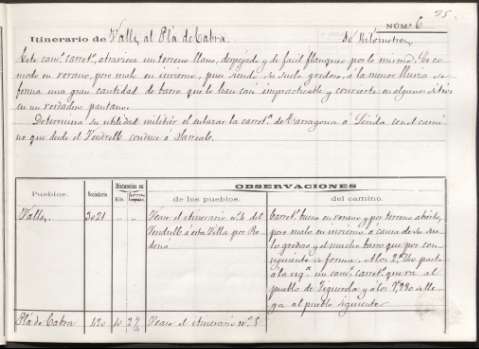 25.
NÚM.º 6
Itinerario de Valls al Plá de Cabra. de Kilómetros
Este cam.º carret.º, atraviesa un terreno llano, despejado y de facil flanqueo por lo mismo. Es co-
modo en verano, pero malo en invierno, pues siendo su suelo gredoso, á la menor lluvia se
forma una gran cantidad de barro que le hace casi impracticable y convierte en algunos sitios
en un verdadero pantano.
Determina su utilidad militar el enlazar la carret.ª de Tarragona á Lérida con el cami-
no que desde el Vendrell conduce á Sarreal.
OBSERVACIONES
Pueblos. Vecindario Distancias en
Km. de los pueblos. del camino.
Valls. 3021 Vease el itinerario nº 4 del
Vendrell á esta Villa por Ro-
doñá
Carret.º bueno en verano y por terreno abierto,
pero malo en invierno á causa de su sue-
lo gredoso y el mucho barro que por con-
siguiente se forma. A los 2, parte
á la izq.ª un cam.º carret.º que va al
pueblo de y á los se lle-
ga al pueblo siguiente
Plá de Cabra 420 Vease el itinerario nº 5